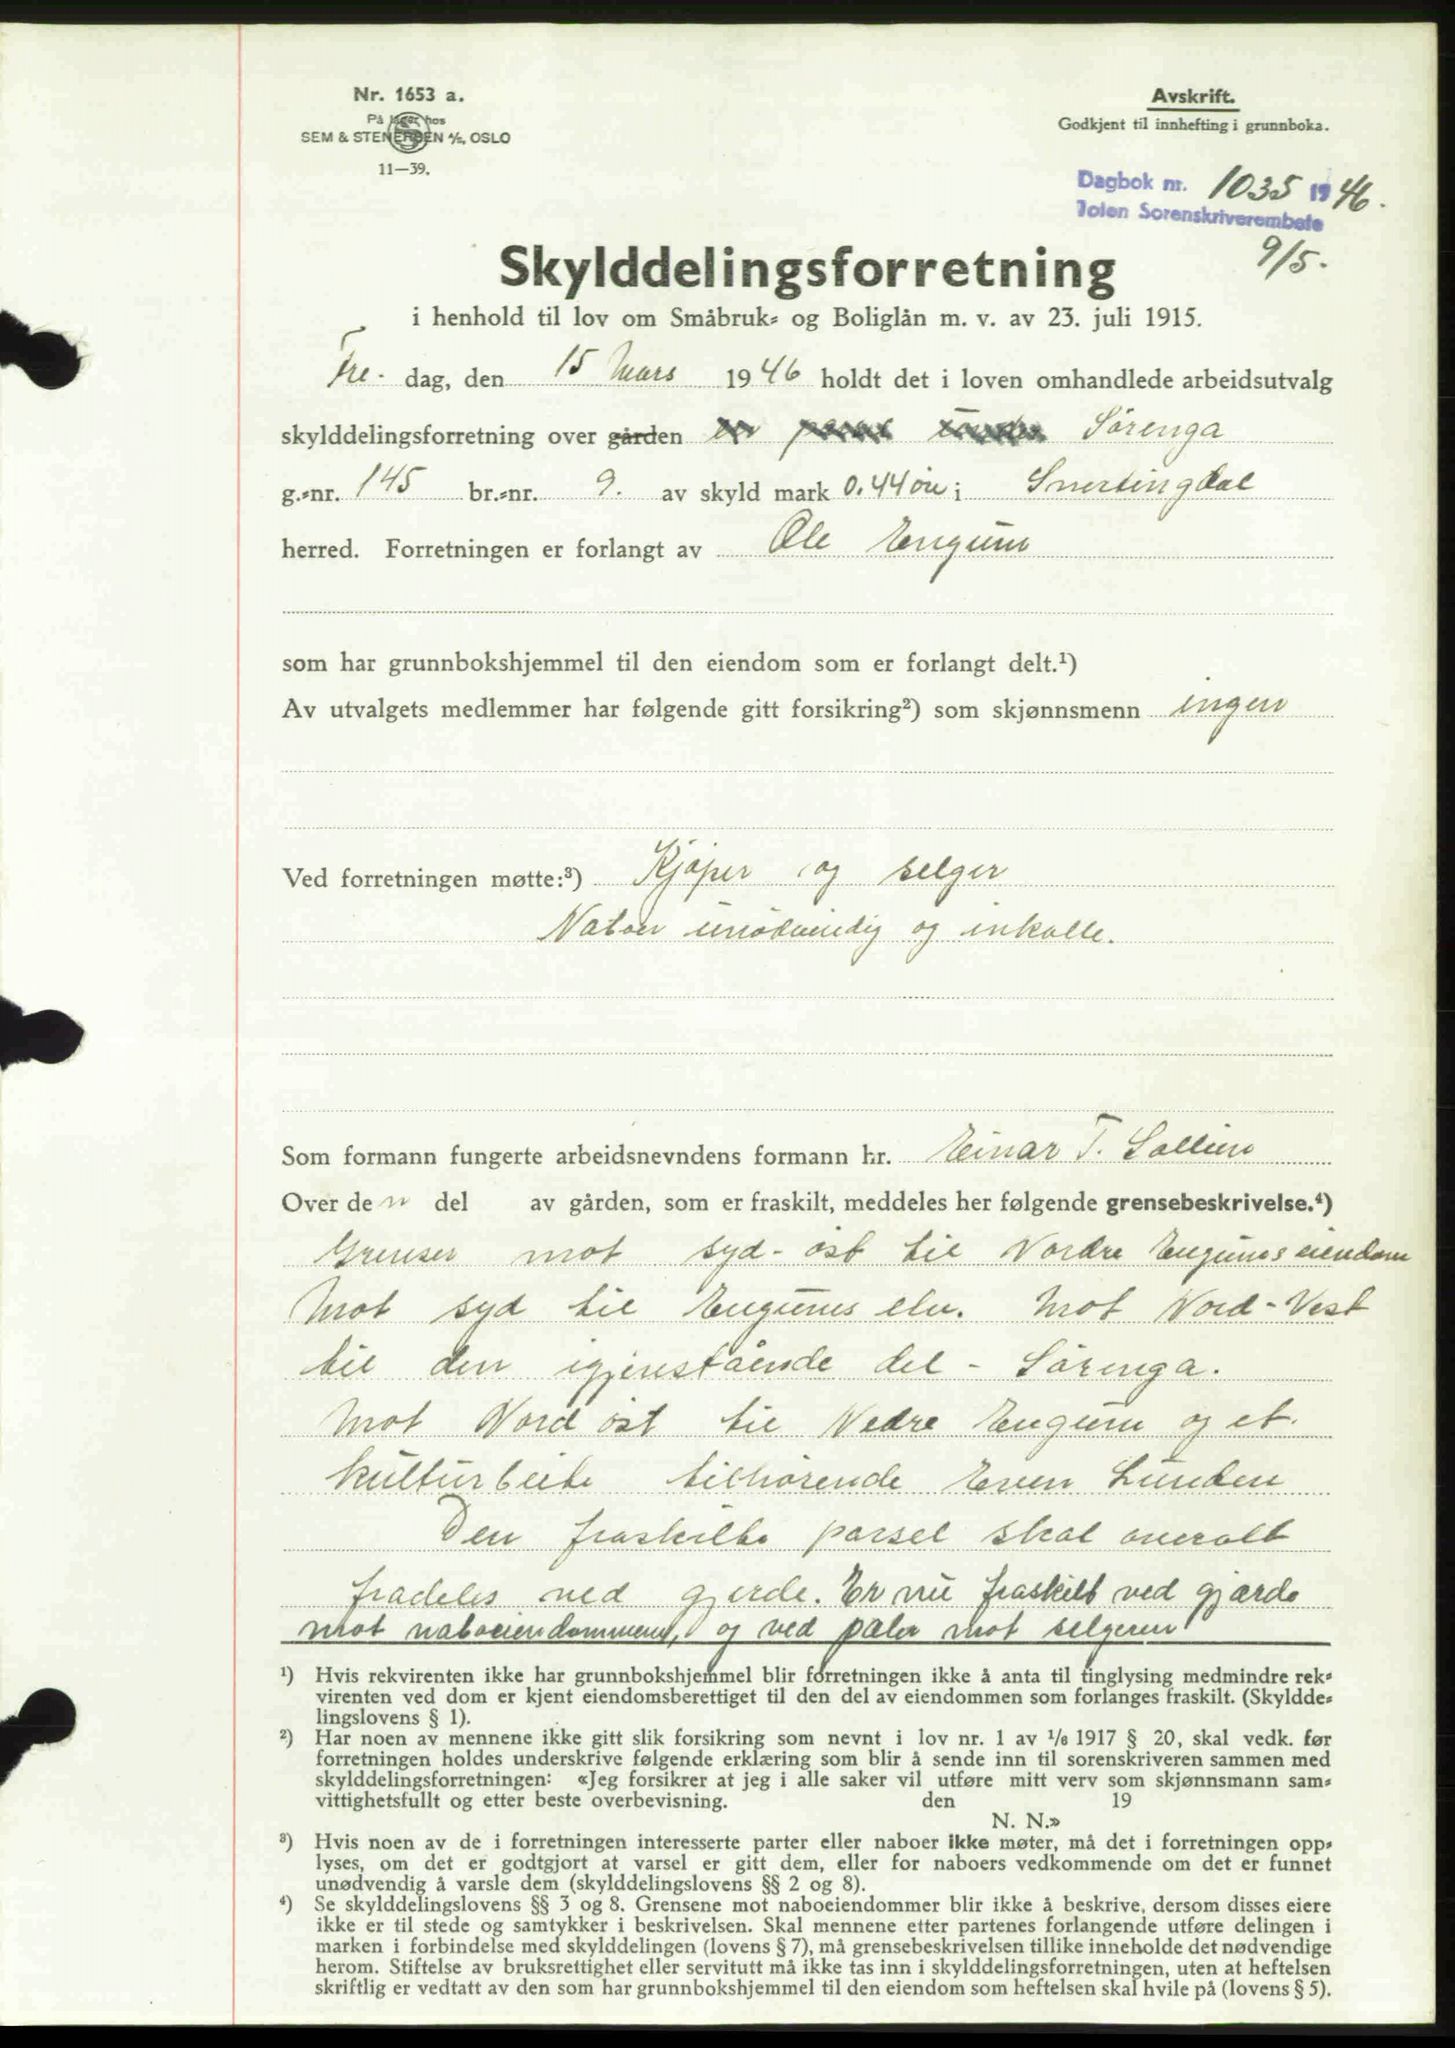 Nr. 1653 a.
På lager hos
SEM & STENERSEN A/S, OSLO
11—39.
Avskrift.
Godkjent til innhefting i grunnboka.
Dagbok nr. 1035 1946.
Toten Sorenskriverembete
9/5.
Skylddelingsforretning
i henhold til lov om Småbruk- og Boliglån m. v. av 23. juli 1915.
Fre- dag, den 15 Mars 1946 holdt det i loven omhandlede arbeidsutvalg
skylddelingsforretning over gården Sörenga
g.-nr. 145 br.-nr. 9. av skyld mark 0.44 öre i Snertingdal
herred. Forretningen er forlangt av Ole Engum
som har grunnbokshjemmel til den eiendom som er forlangt delt.¹)
Av utvalgets medlemmer har følgende gitt forsikring²) som skjønnsmenn ingen
Ved forretningen møtte:³) Kjöper og selger
Naboer unödvendig og inkalle.
Som formann fungerte arbeidsnevndens formann hr. Einar T. Sollien
Over den del av gården, som er fraskilt, meddeles her følgende grensebeskrivelse.⁴)
Grenser mot syd-öst til Nordre Engums eiendom
Mot syd til Engums elv. Mot Nord-Vest
til den igjenstående del - Sörenga.
Mot Nord öst til Nedre Engum og et
kulturbeite tilhörende Even Lunden
Den fraskilte parsel skal overalt
fradeles ved gjerde. Er nu fraskilt ved gjærde
mot naboeiendommene, og ved pæler mot selgeren
¹) Hvis rekvirenten ikke har grunnbokshjemmel blir forretningen ikke å anta til tinglysing medmindre rek-
virenten ved dom er kjent eiendomsberettiget til den del av eiendommen som forlanges fraskilt. (Skyldde-
lingslovens § 1).
²) Har noen av mennene ikke gitt slik forsikring som nevnt i lov nr. 1 av 1/8 1917 § 20, skal vedk. før
forretningen holdes underskrive følgende erklæring som blir å sende inn til sorenskriveren sammen med
skylddelingsforretningen: «Jeg forsikrer at jeg i alle saker vil utføre mitt verv som skjønnsmann sam-
vittighetsfullt og etter beste overbevisning. den 19
N. N.»
³) Hvis noen av de i forretningen interesserte parter eller naboer ikke møter, må det i forretningen opp-
lyses, om det er godtgjort at varsel er gitt dem, eller for naboers vedkommende om det er funnet
unødvendig å varsle dem (skylddelingslovens §§ 2 og 8).
⁴) Se skylddelingslovens §§ 3 og 8. Grensene mot naboeiendommer blir ikke å beskrive, dersom disses eiere
ikke er til stede og samtykker i beskrivelsen. Skal mennene etter partenes forlangende utføre delingen i
marken i forbindelse med skylddelingen (lovens § 7), må grensebeskrivelsen tillike inneholde det nødvendige
herom. Stiftelse av bruksrettighet eller servitutt må ikke tas inn i skylddelingsforretningen, uten at heftelsen
skriftlig er vedtatt av den som har grunnbokshjemmel til den eiendom som heftelsen skal hvile på (lovens § 5).